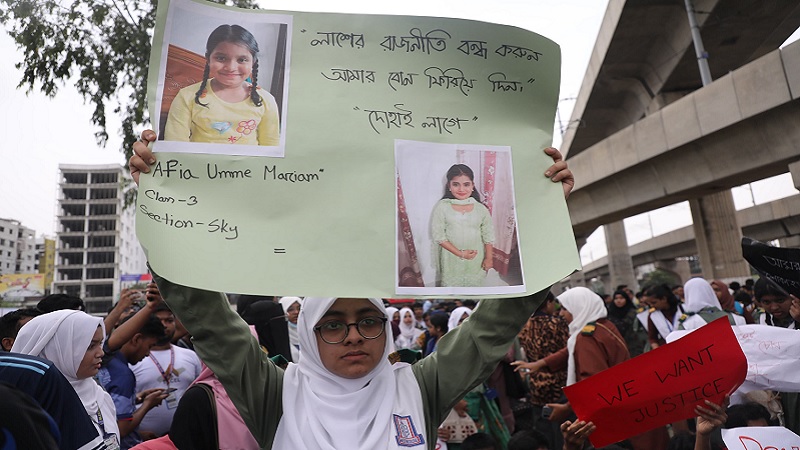 "লাশের রাজনীতি বন্ধ করুন
আমার বোন ফিরিয়ে দিন।"
"দোহাই লাগে"
"Afia Umme Marciam"
Class-3
Section-Sky
=
WE WANT
JUSTICE